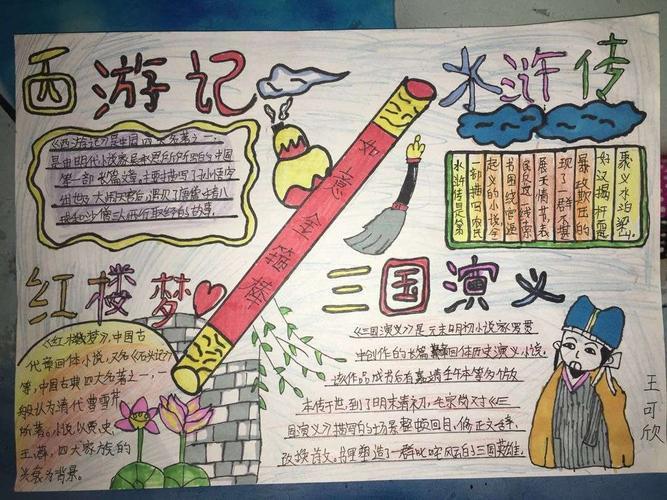 西游记
《西游记》是中国四大名著之一,
是由明代小说家吴承恩所写的中国
第一部长篇
大闹天宫后,遇见了唐僧、猪八
戒和沙僧三人西行取经的故事。
如意金箍棒
水浒传
聚义水泊梁山
好汉揭竿而
暴政欺压的
现了一群不甚
展示情节,表
民起义这一线索
书围绕官逼
起义的小说全
部描写农民
水浒传是第一
红楼梦
《红楼梦》,中国古
代章回体小说,又名《石头记》
等,中国古典四大名著之一,一
般认为清代曹雪芹
所著。小说以贾、史、
王、薛,四大家族的
兴衰为背景。
三国演义
《三国演义》是元末明初小说家罗贯
中创作的长篇章回体历史演义小说。
该作品成书后有嘉靖壬午本等多个版
本传于世,到了明末清初,毛宗岗对《三
国演义》整顿回目、修正文辞、
改换诗文。塑造了一群叱咤风云的三国英雄。
王可欣